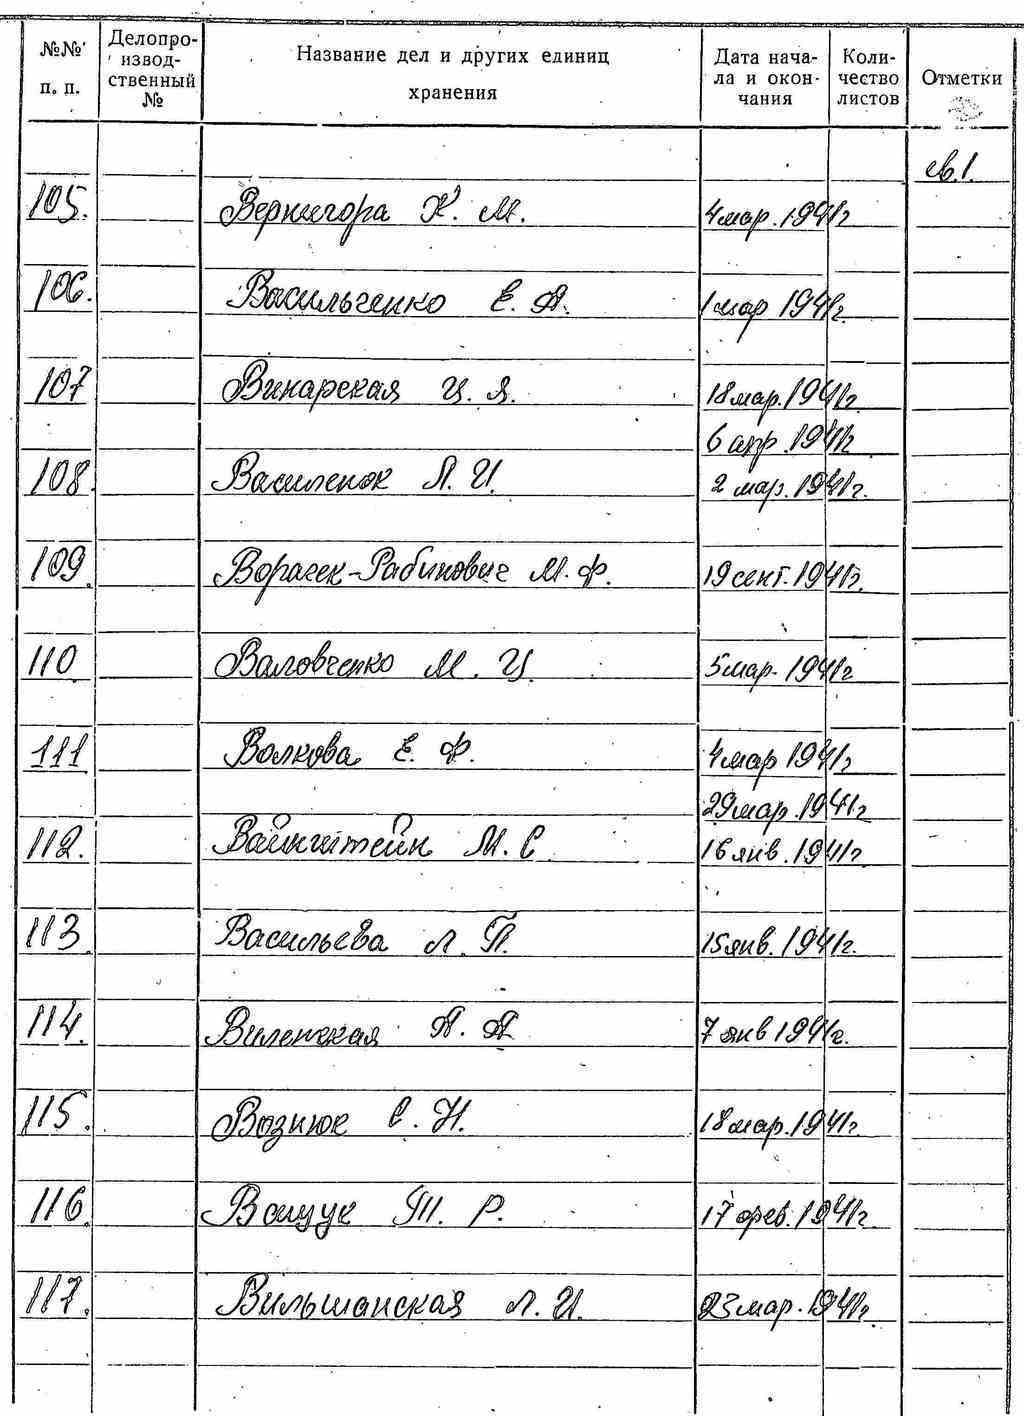 №№ п. п. Делопроизводственный № Название дел и других единиц хранения Дата начала и окончания Количество листов Отметки
св. 1.
105. Вернигора К. М. 4 мар. 1941г
106. Васильченко Е. А. 1 мар 1941г.
107 Винарская Ц. Я. 18 мар. 1941г.
6 апр. 1941г
108. Василенок Л. И. 2 мар. 1941г.
109. Ворачек-Рабинович М. Ф. 19 сент. 1941г.
110 Валовченко М. И. 5 мар. 1941г
111 Волкова Е. Ф. 4 мар 1941г
29 мар. 1941г
112. Вайнштейн М. С 16 янв. 1941г
113. Васильева Л. П. 15 янв. 1941г.
114. Виленская А. А. 7 янв 1941г.
115. Вознюк С. Н. 18 мар. 1941г.
116. Ващук Т. Р. 17 фев. 1941г.
117. Вильшанская Л. И. 23 мар. 1941г.